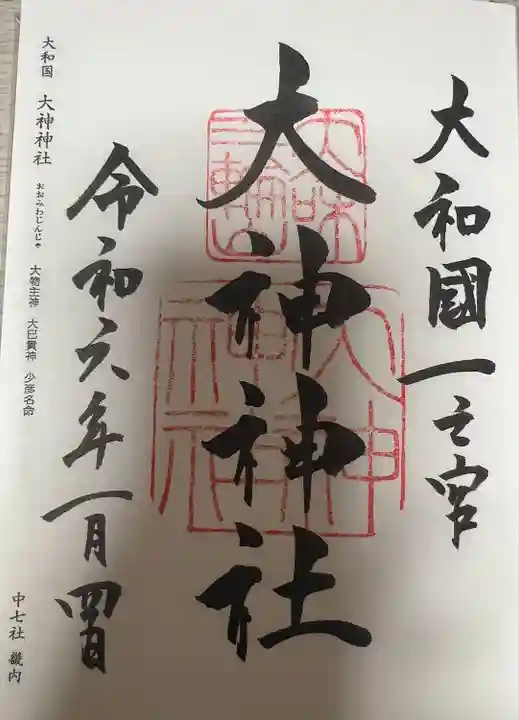 大和國一之宮
大神神社
令和六年一月四日
大和国 大神神社 おおみわじんじゃ 大物主神 大己貴神 少彦名命
中七社 畿内
三輪山
大神神社